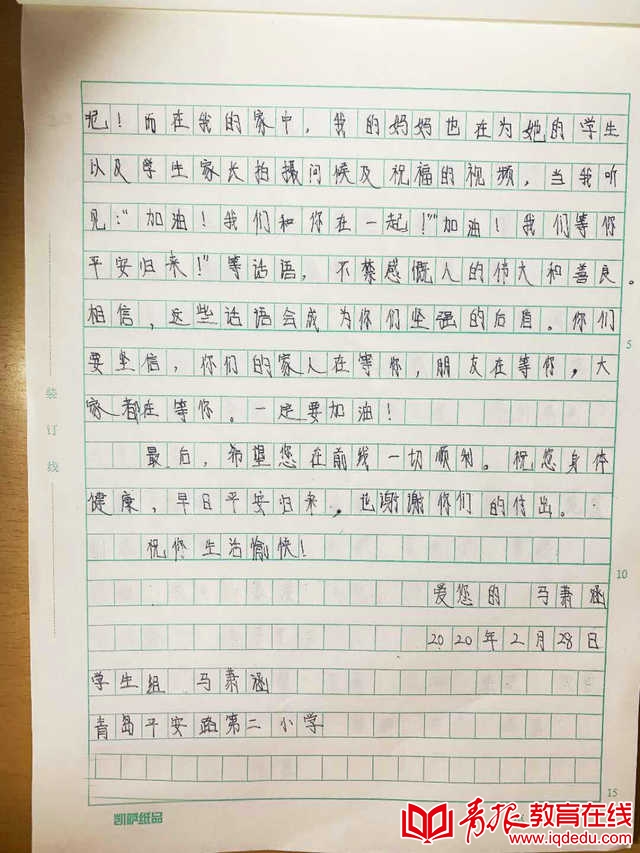 吧！而在我的家中，我的妈妈也在为她的学生
以及学生家长拍摄问候及祝福的视频，当我听
见：“加油！我们和你在一起！”“加油！我们等你
平安归来！”等话语，不禁感慨人的伟大和善良。
相信，这些话语会成为你们坚强的后盾。你们
要坚信，你们的家人在等你，朋友在等你，大
家都在等你。一定要加油！
最后，希望您在前线一切顺利。祝您身体
健康，早日平安归来，也谢谢你们的付出。
祝您生活愉快！
爱您的 马萧涵
2020年2月28日
学生组 马萧涵
青岛平安路第二小学
装订线
5
10
15
凯萨纸品
青报教育在线
www.iqdedu.com